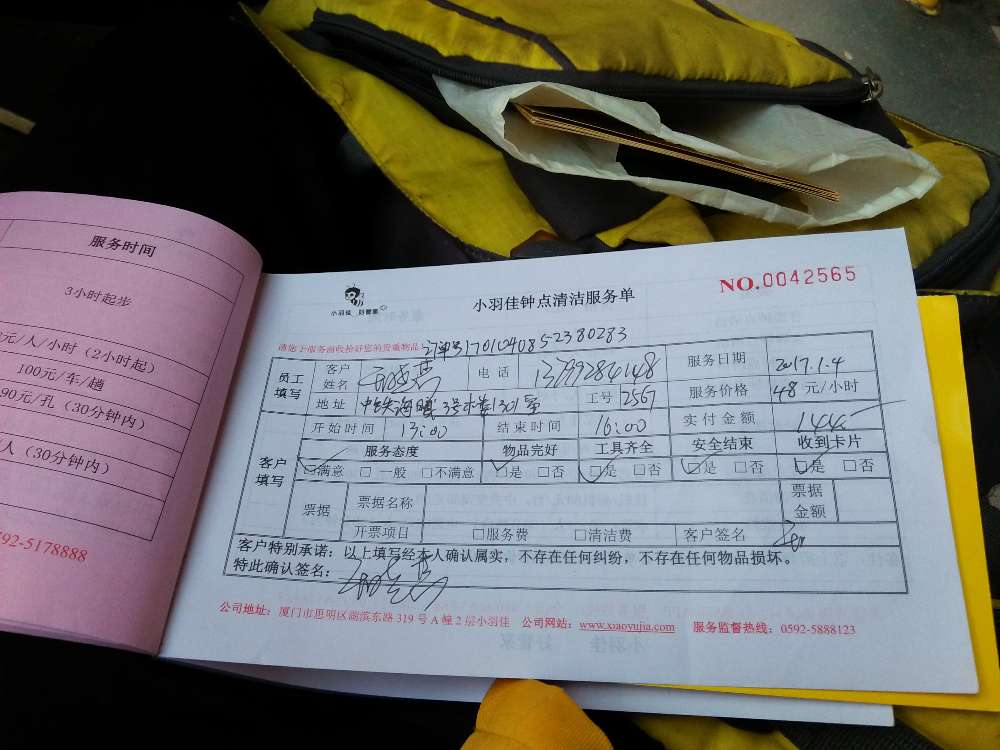 服务时间
3小时起步
0元/人/小时（2小时起）
100元/车/趟
90元/孔（30分钟内）
人（30分钟内）
592-5178888
小羽佳 好管家
小羽佳钟点清洁服务单
NO.0042565
订单号1701040852380283
员工填写
客户姓名
电话
13799284148
服务日期
2017.1.4
地址
工号
2567
服务价格
48元/小时
开始时间
13:00
结束时间
16:00
实付金额
144
客户填写
服务态度
物品完好
工具齐全
安全结束
收到卡片
□满意 □一般 □不满意
□是 □否
□是 □否
□是 □否
□是 □否
票据
票据名称
票据金额
开票项目
□服务费 □清洁费
客户签名
客户特别承诺：以上填写经本人确认属实，不存在任何纠纷，不存在任何物品损坏。
特此确认签名：
公司地址：厦门市思明区湖滨东路319号A幢2层小羽佳 公司网站：www.xiaoyujia.com 服务监督热线：0592-5888123